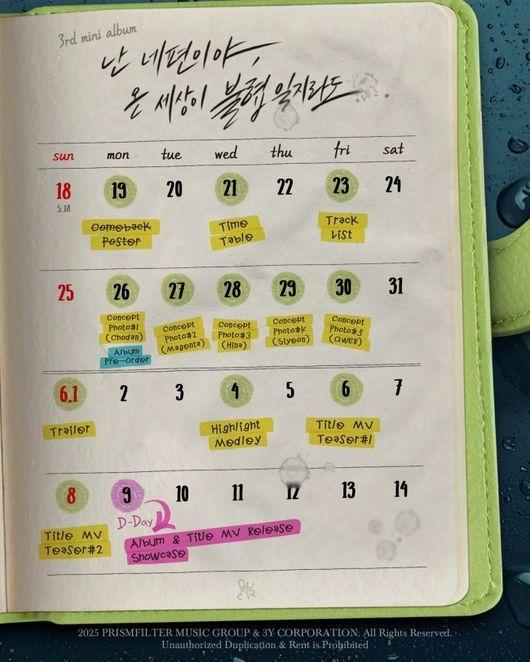 3rd mini album
난 네편이야,
온 세상이 불협일지라도
sun mon tue wed thu fri sat
18 19 20 21 22 23 24
5.18
Comeback Poster
Time Table
Track List
25 26 27 28 29 30 31
Concept Photo#1 (Chodan)
Album Pre-Order
Concept Photo#2 (Magenta)
Concept Photo#3 (Hina)
Concept Photo#4 (Siyeon)
Concept Photo#5 (QWER)
6.1 2 3 4 5 6 7
Trailer
Highlight Medley
Title MV Teaser#1
8 9 10 11 12 13 14
Title MV Teaser#2
D-Day
Album & Title MV Release
Showcase
2025 PRISMFILTER MUSIC GROUP & 3Y CORPORATION. All Rights Reserved.
Unauthorized Duplication & Rent is Prohibited